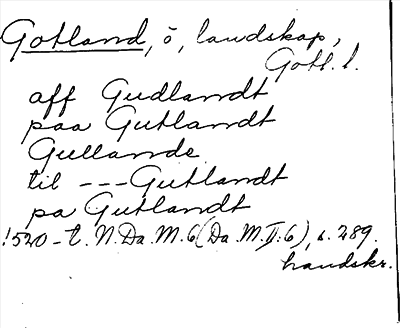 Gotland, ö, landskap,
Gotl. l.
aff Gudlandt
paa Gutlandt
Gullande
til --- Gutlandt
pa Gutlandt
1520-t. N.Da.M.6 (Da.M.II:6), s. 289.
handskr.